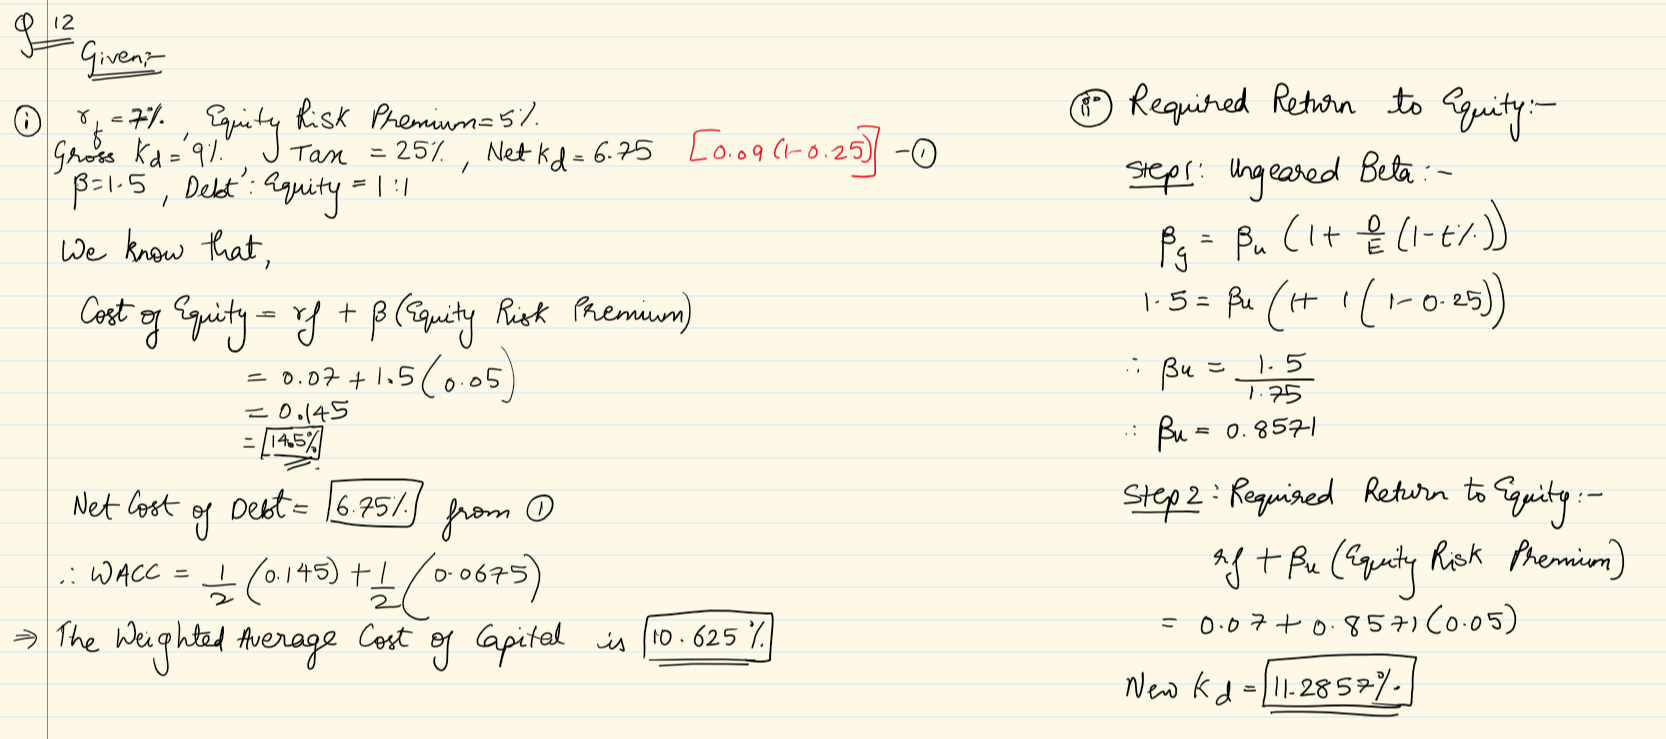 Q 12
Given:-
(i) rf = 7%, Equity Risk Premium = 5%.
Gross Kd = 9%, Tax = 25%, Net Kd = 6.75 [0.09 (1-0.25)] - (1)
β = 1.5, Debt : Equity = 1:1
We know that,
Cost of Equity = rf + β (Equity Risk Premium)
= 0.07 + 1.5 (0.05)
= 0.145
= 14.5%
Net Cost of Debt = 6.75% from (1)
∴ WACC = 1/2 (0.145) + 1/2 (0.0675)
⇒ The Weighted Average Cost of Capital is 10.625 %
(ii) Required Return to Equity:-
Step 1: Ungeared Beta :-
βg = βu (1 + D/E (1-t%))
1.5 = βu (1 + 1 (1 - 0.25))
∴ βu = 1.5/1.75
∴ βu = 0.8571
Step 2 : Required Return to Equity :-
rf + βu (Equity Risk Premium)
= 0.07 + 0.8571 (0.05)
New Kd = 11.2857%